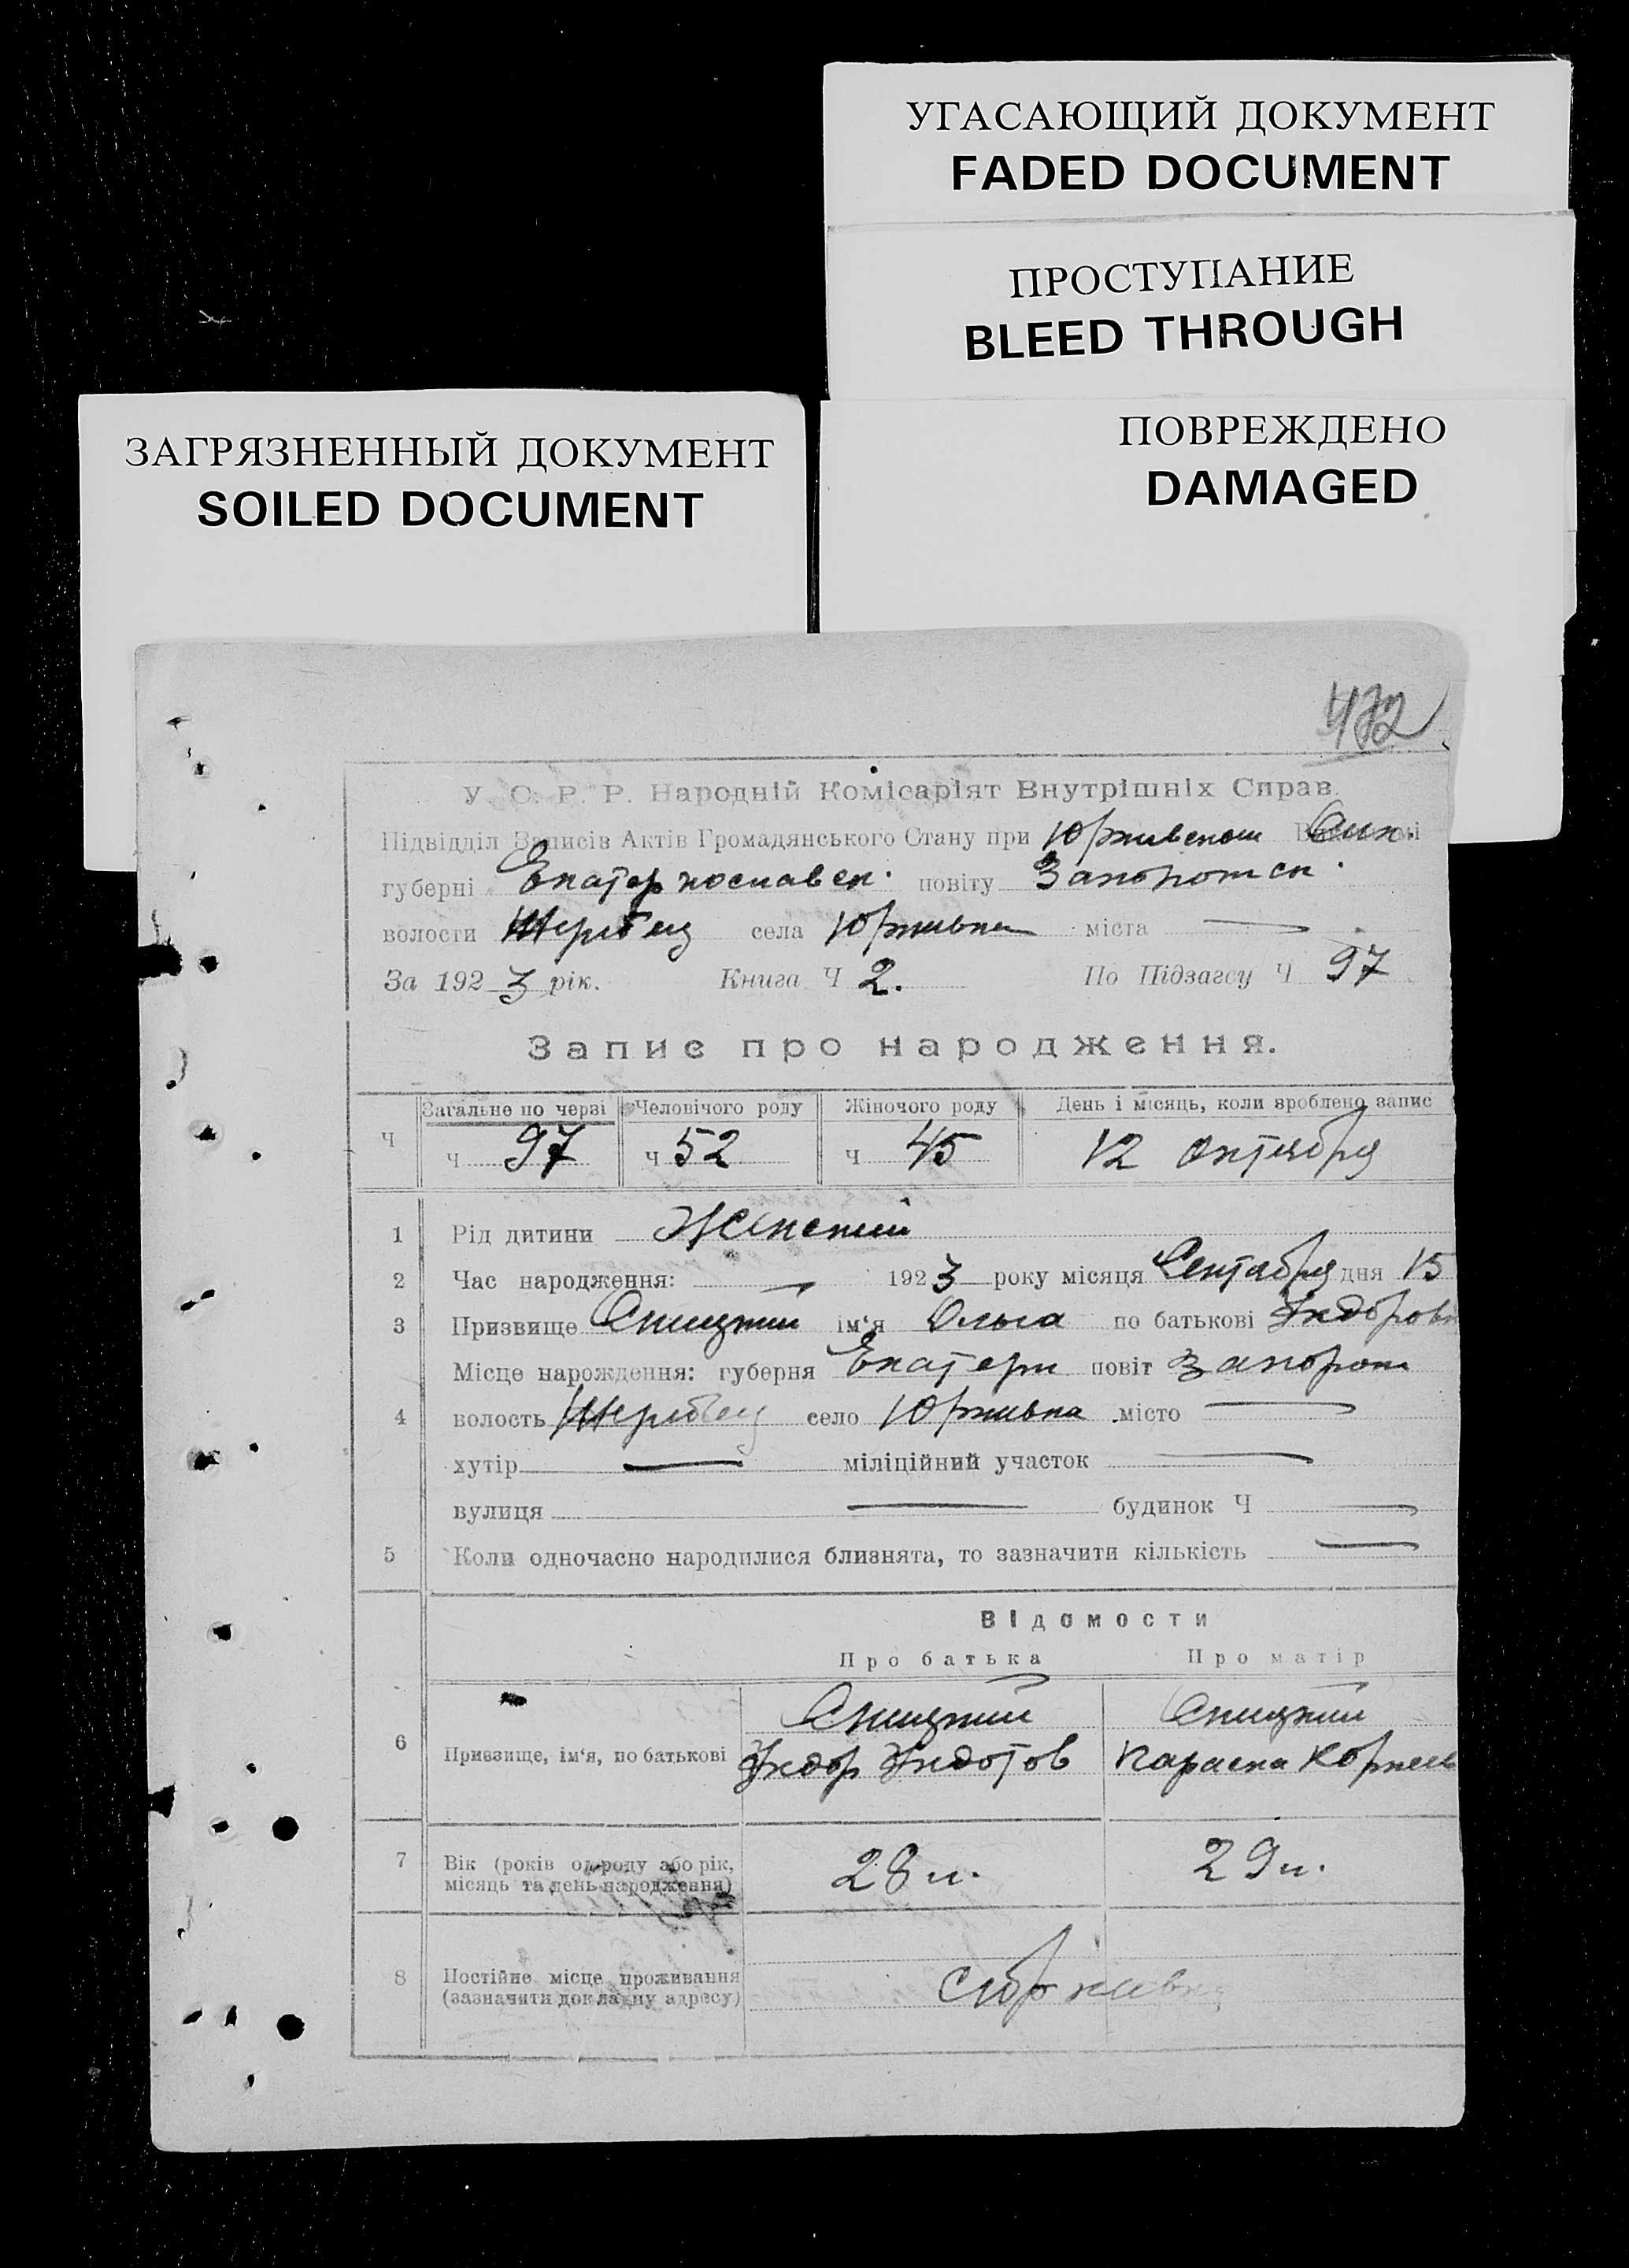 УГАСАЮЩИЙ ДОКУМЕНТ
FADED DOCUMENT
ПРОСТУПАНИЕ
BLEED THROUGH
ЗАГРЯЗНЕННЫЙ ДОКУМЕНТ
SOILED DOCUMENT
ПОВРЕЖДЕНО
DAMAGED
472
У. С. Р. Р. Народній Комісаріят Внутрішніх Справ.
Підвідділ Записів Актів Громадянського Стану при
губерні Екатеринославск. повіту
волости села Юрживка міста
За 1923 рік. Книга Ч 2. По Підзагсу Ч 97
Запис про народження.
Загальне по черзі Человічого роду Жіночого роду День і місяць, коли зроблено запис
Ч ч 97 ч 52 ч 45 12 Октября
1 Рід дитини Женский
2 Час народження: 1923 року місяця Сентября дня 15
3 Призвище Спицкий ім'я Ольга по батькові
Місце нарождення: губерня Екатерн повіт
4 волость село Юрживка місто
хутір міліційний участок
вулиця будинок Ч
5 Коли одночасно народилися близнята, то зазначити кількість
Відомости
Про батька Про матір
Спицкий Спицкий
6 Призвище, ім'я, по батькові
7 Вік (років од роду або рік, 28 л. 29 л.
місяць та день народження)
8 Постійне місце проживання
(зазначити докладну адресу) с Юрживка